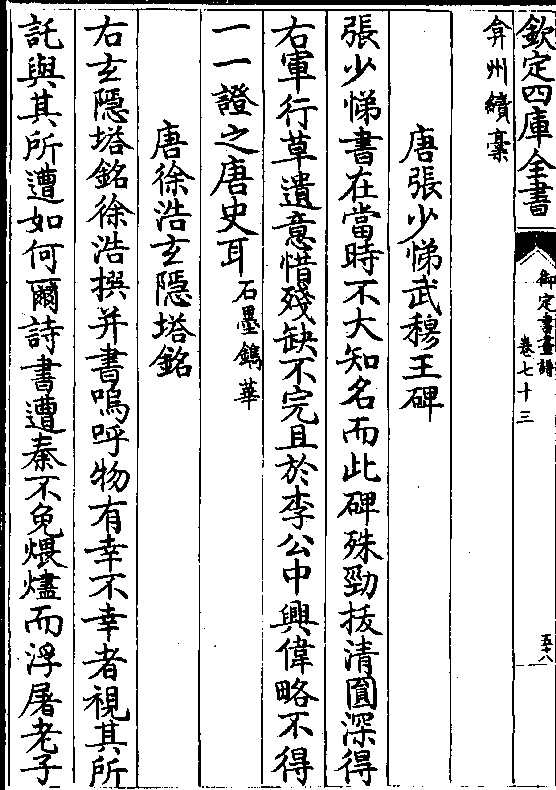 欽定四庫全書
御定書畫譜
卷七十三
五十八
弇州續藁
唐張少悌武穆王碑
張少悌書在當時不大知名而此碑殊勁拔清圓深得
右軍行草遺意惜殘缺不完且於李公中興偉略不得
一一證之唐史耳石墨鐫華
唐徐浩玄隱塔銘
右玄隱塔銘徐浩撰并書嗚呼物有幸不幸者視其所
託與其所遭如何爾詩書遭秦不免煨燼而浮屠老子